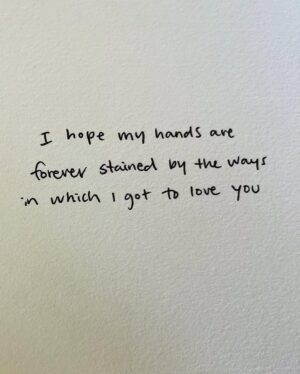 I hope my hands are
forever stained by the ways
in which I got to love you